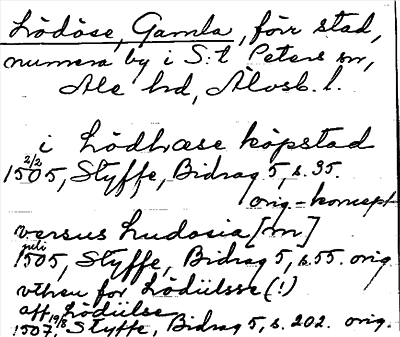 Lödöse, Gamla, förr stad,
numera by i S:t Peters sn,
Ale hd, Älvsb. l.
i Lödhæse köpstad
2/2
1505, Styffe, Bidrag 5, s. 35.
orig.-koncept
versus Ludosia[m]
juli
1505, Styffe, Bidrag 5, s. 55. orig
vthen for Lödiilsse(!)
aff Lödiilse
19/8
1507, Styffe, Bidrag 5, s. 202. orig.